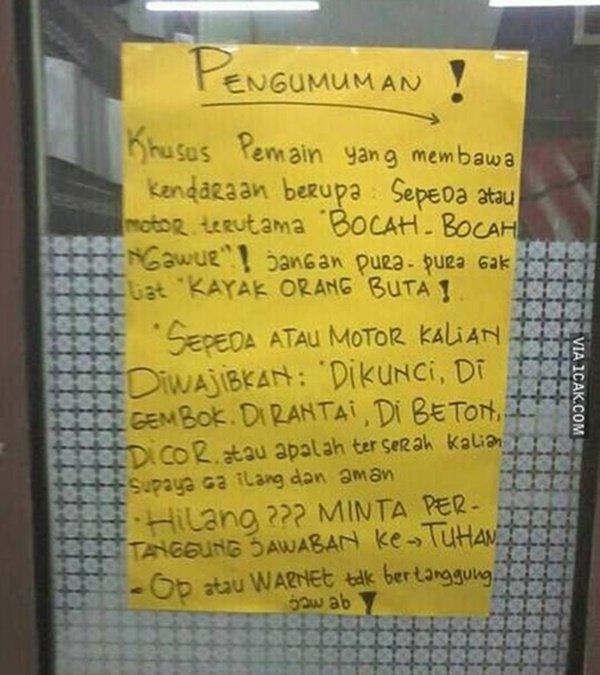 PENGUMUMAN !
Khusus Pemain yang membawa
kendaraan berupa : SEPEDA atau
motor. terutama "BOCAH - BOCAH
NGAWUR" ! jangan pura - pura gak
liat "KAYAK ORANG BUTA !
"SEPEDA ATAU MOTOR KALIAN
DIWAJIBKAN : "DIKUNCI, DI
GEMBOK. DIRANTAI, DI BETON,
DICOR. atau apalah terserah kalian
supaya ga ilang dan aman
- Hilang ??? MINTA PER-
TANGGUNG JAWABAN ke → TUHAN
- Op atau WARNET tdk bertanggung
jawab !
VIA 1CAK.COM